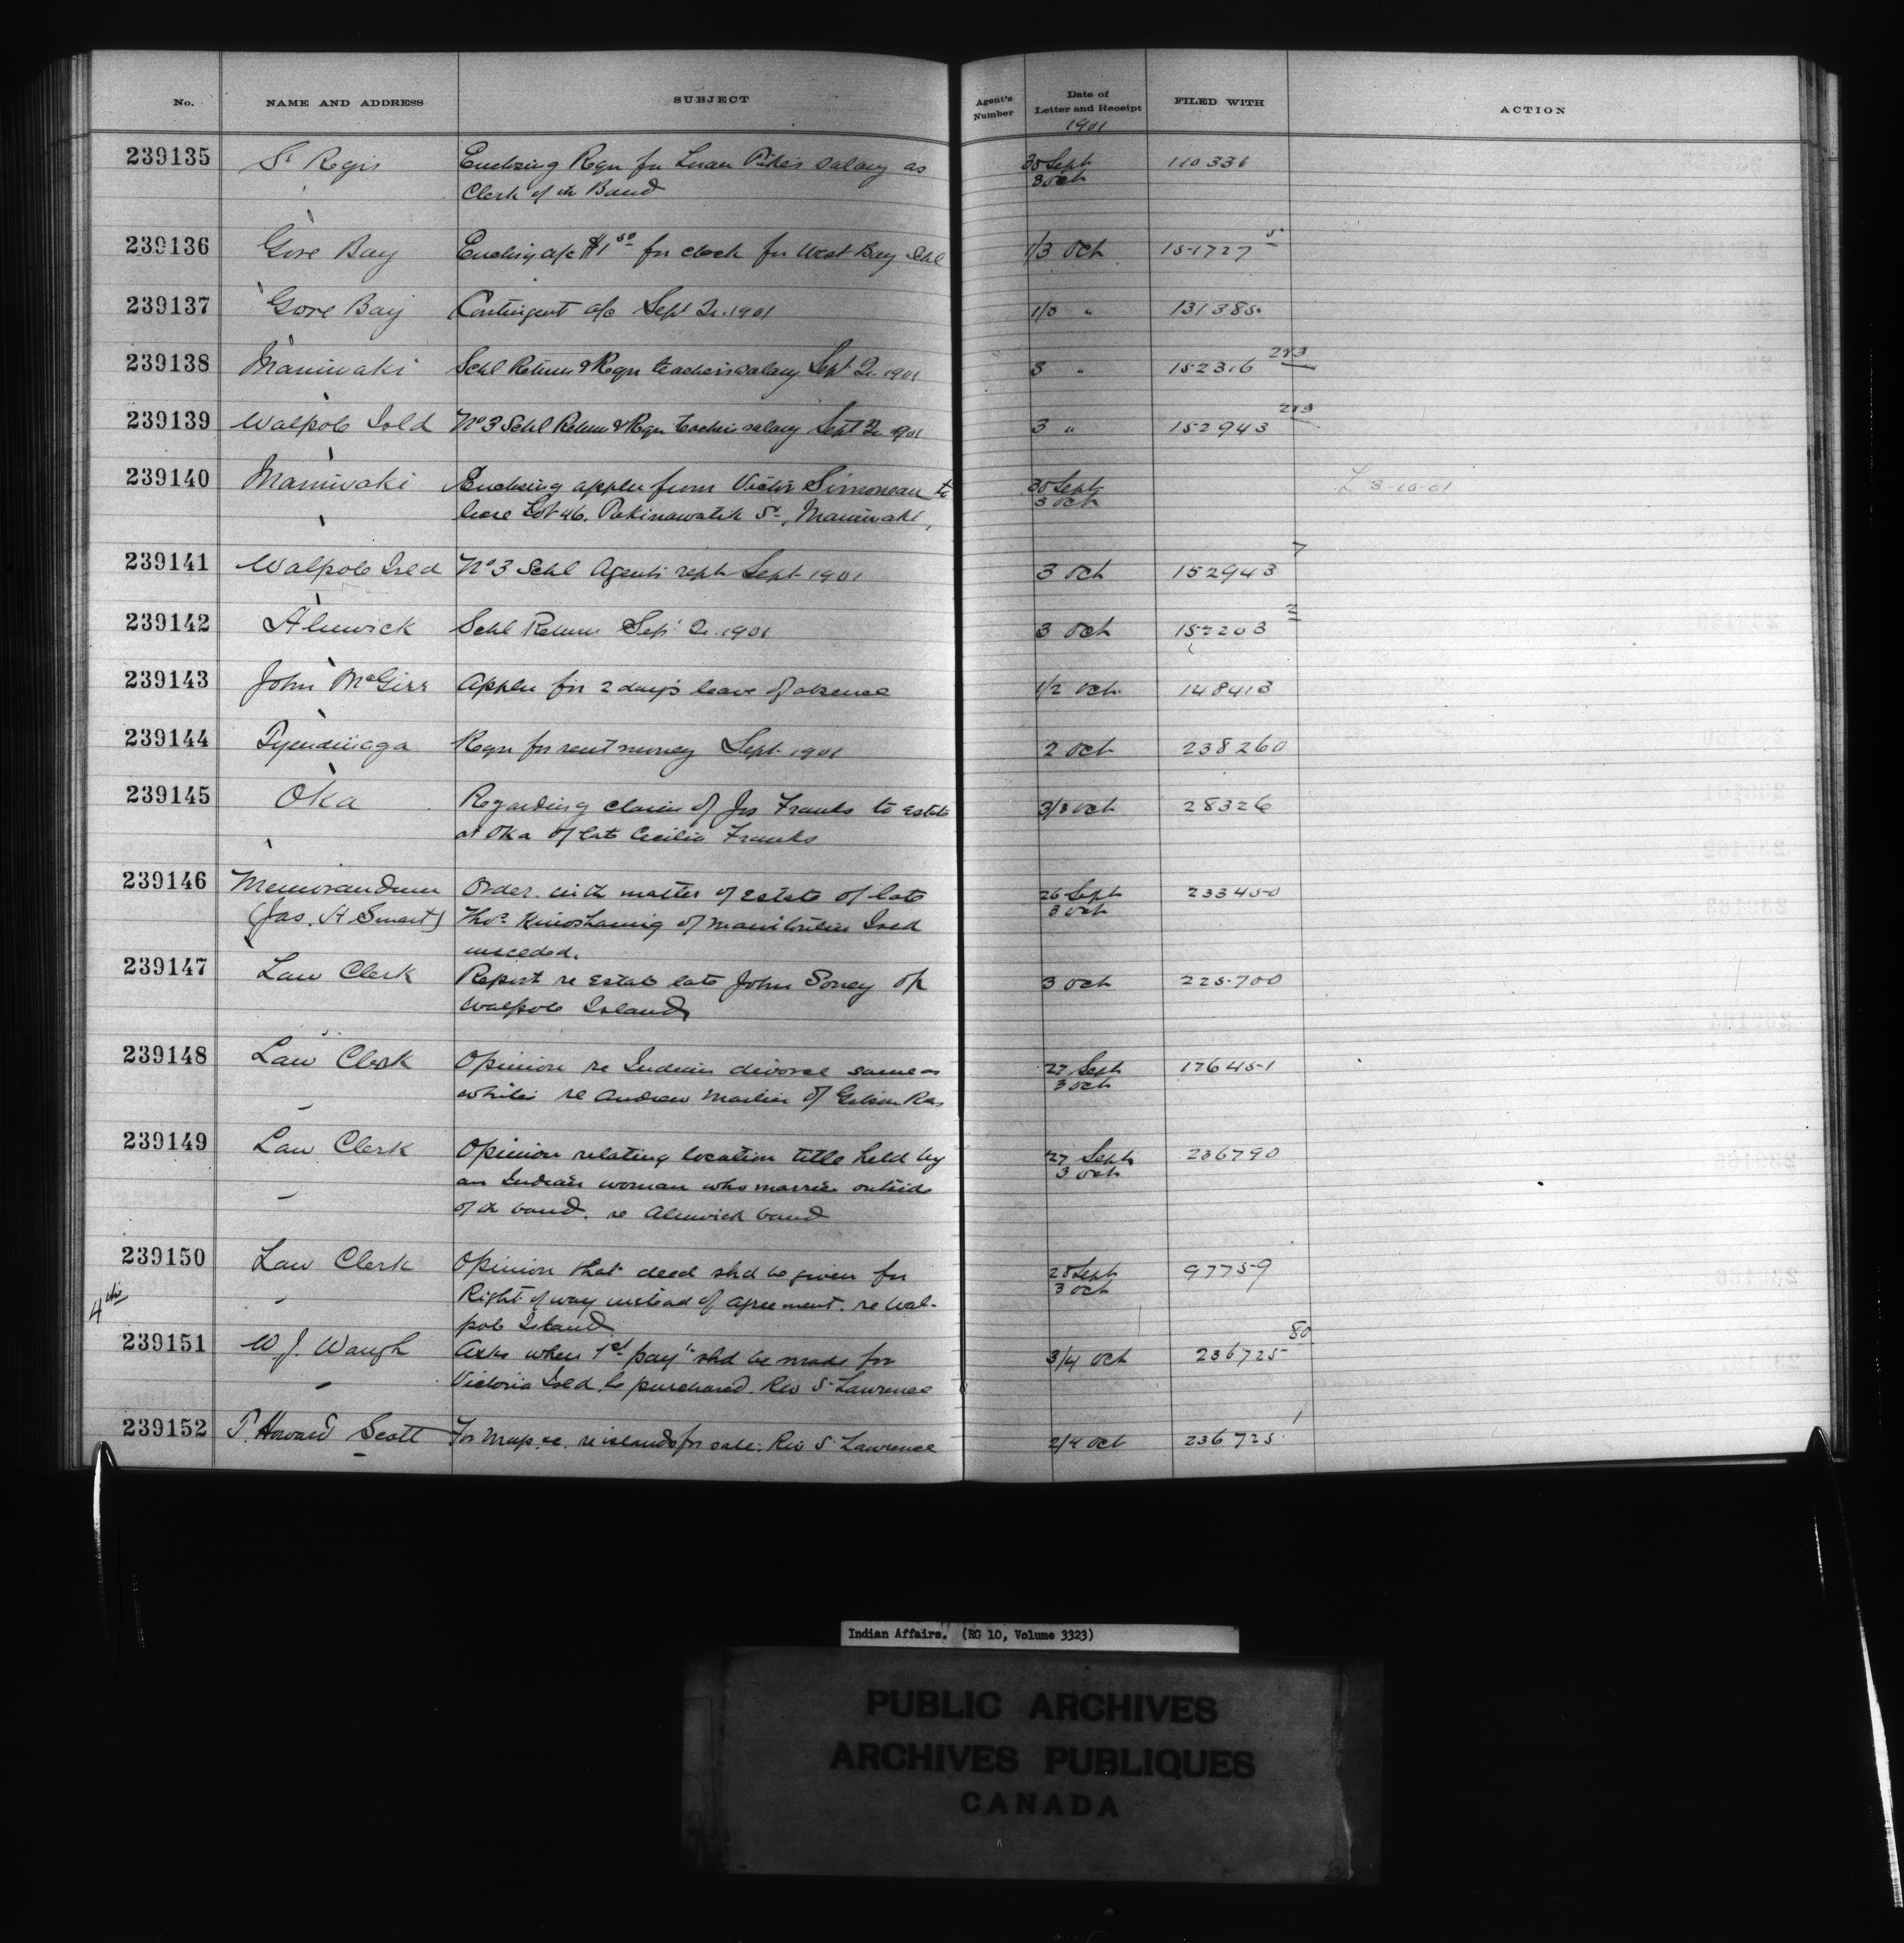 No. NAME AND ADDRESS SUBJECT Agent's Number Date of Letter and Receipt FILED WITH ACTION
1901
239135 St Regis Enclosing Reqn for salary as 30 Sept 110336
Clerk of th Band 3 Oct
239136 Gore Bay Enclosing a/c $1 50 for clock for West Bay Schl 1/3 Oct 151727 5
239137 Gore Bay Contingent a/c Sept Qr. 1901 1/3 " 131385
239138 Maniwaki Schl Return & Reqn teachers salary Sept Qr. 1901 3 " 152316 2&3
239139 Walpole Isld No 3 Schl Return & Reqn teachers salary Sept Qr 1901 3 " 152943 2&3
239140 Maniwaki Enclosing appln from Victor Simoneau to 30 Sept L 3-10-01
lease Lot 46. St, Maniwaki, 3 Oct
239141 Walpole Isld No 3 Schl Agents rept Sept 1901 3 Oct 152943 7
239142 Alnwick Schl Return Sept Qr. 1901 3 Oct 152203 2
239143 John McGirr Appln for 2 day's leave of absence 1/2 Oct. 148413
239144 Tyendinaga Reqn for rent money Sept. 1901 2 Oct 238260
239145 Oka Regarding claim of Jos Franks to Estate 3/3 Oct 28326
at Oka of late Cecilia Franks
239146 Memorandum Order in th matter of Estate of late 26 Sept 233450
(Jas. A Smart) Thos Kinoshameg of Manitoulin Isld 3 Oct
unceded.
239147 Law Clerk Report re Estate late John Soney of 3 Oct 225700
Walpole Island
239148 Law Clerk Opinion re Indian divorce same as 27 Sept 176451
whites re Andrew of Gibson Res 3 Oct
239149 Law Clerk Opinion relating location title held by 27 Sept 236790
an Indian woman who marries outside 3 Oct
of th band. re Alnwick band
239150 Law Clerk Opinion that deed shd be given for 28 Sept 97759
4th Right of way instead of agreement. re Wal- 3 Oct
pole Island
239151 W J. Waugh Asks when 1st payt shd be made for 3/4 Oct 236725 80
Victoria Isld he purchased. Riv St Lawrence
239152 T. Howard Scott For Map &c. re islands for sale. Riv St Lawrence 2/4 Oct 236725 1
Indian Affairs. (RG 10, Volume 3323)
PUBLIC ARCHIVES
ARCHIVES PUBLIQUES
CANADA